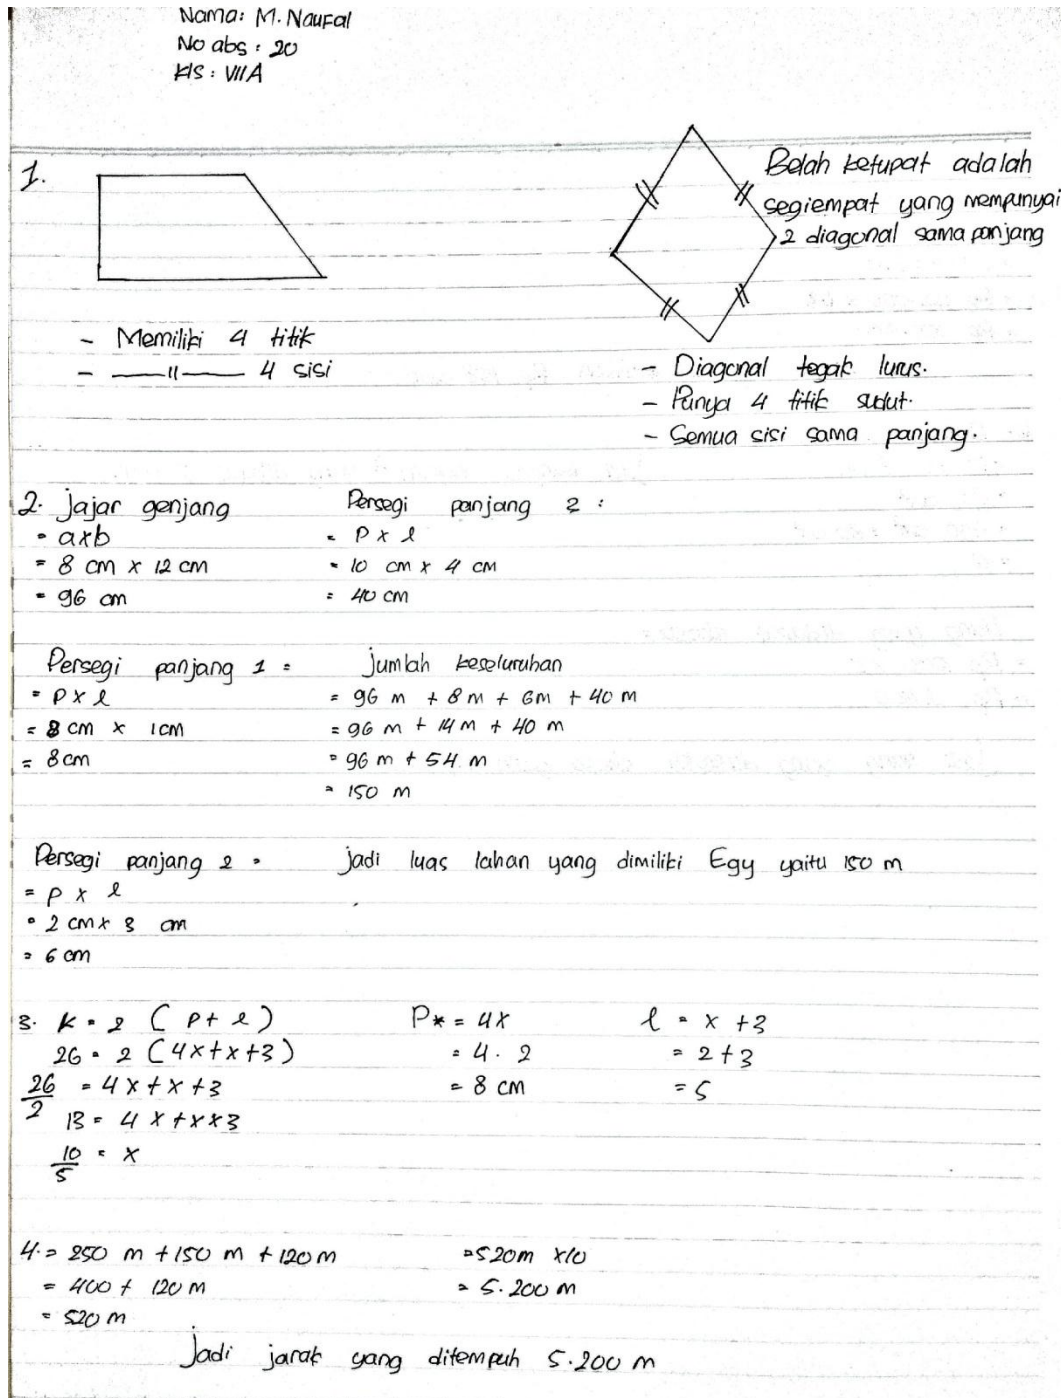 Nama: M. Naufal
No abs : 20
Kls : VII A
1.
Belah ketupat adalah
segiempat yang mempunyai
2 diagonal sama panjang
- Memiliki 4 titik
- —— 〃 —— 4 sisi
- Diagonal tegak lurus.
- Punya 4 titik sudut.
- Semua sisi sama panjang.
2. Jajar genjang
= axb
= 8 cm x 12 cm
= 96 cm
Persegi panjang 3 :
= P x l
= 10 cm x 4 cm
= 40 cm
Persegi panjang 1 =
= P x l
= 8 cm x 1 cm
= 8 cm
Jumlah keseluruhan
= 96 m + 8 m + 6 m + 40 m
= 96 m + 14 m + 40 m
= 96 m + 54 m
= 150 m
Persegi panjang 2 =
= P x l
= 2 cm x 3 cm
= 6 cm
Jadi luas lahan yang dimiliki Egy yaitu 150 m
3. K = 2 (P + l)
26 = 2 (4x + x + 3)
26/2 = 4x + x + 3
13 = 4x + x x 3
10/5 = x
P = 4x
= 4 . 2
= 8 cm
l = x + 3
= 2 + 3
= 5
4. = 250 m + 150 m + 120 m
= 400 + 120 m
= 520 m
= 520 m x 10
= 5.200 m
Jadi jarak yang ditempuh 5.200 m